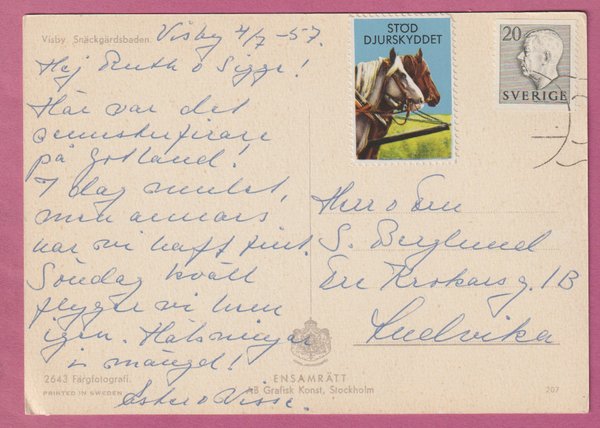 Visby. Snäckgärdsbaden.
Visby 4/7 -57.
Hej Ruth o Sigge!
Här var det
semesterfirare
på Gotland!
I dag mulet,
men annars
har vi haft fint.
Söndag kväll
flyger vi hem
igen. Hälsningar
i mängd!
Ester o Nisse.
STÖD
DJURSKYDDET
20
SVERIGE
Herr o Fru
S. Berglund
g. 1B
Ludvika
2643 Färgfotografi.
PRINTED IN SWEDEN
ENSAMRÄTT
AB Grafisk Konst, Stockholm
207